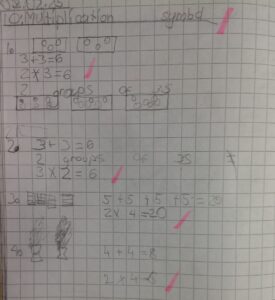 Multiplication symbol
1.
3+3=6
2×3=6
2 groups of 3s
2. 3+3=6
2 groups of 3s
3×2=6
3. 5+5+5+5=20
2×4=20
4. 4+4=8
2×4=8